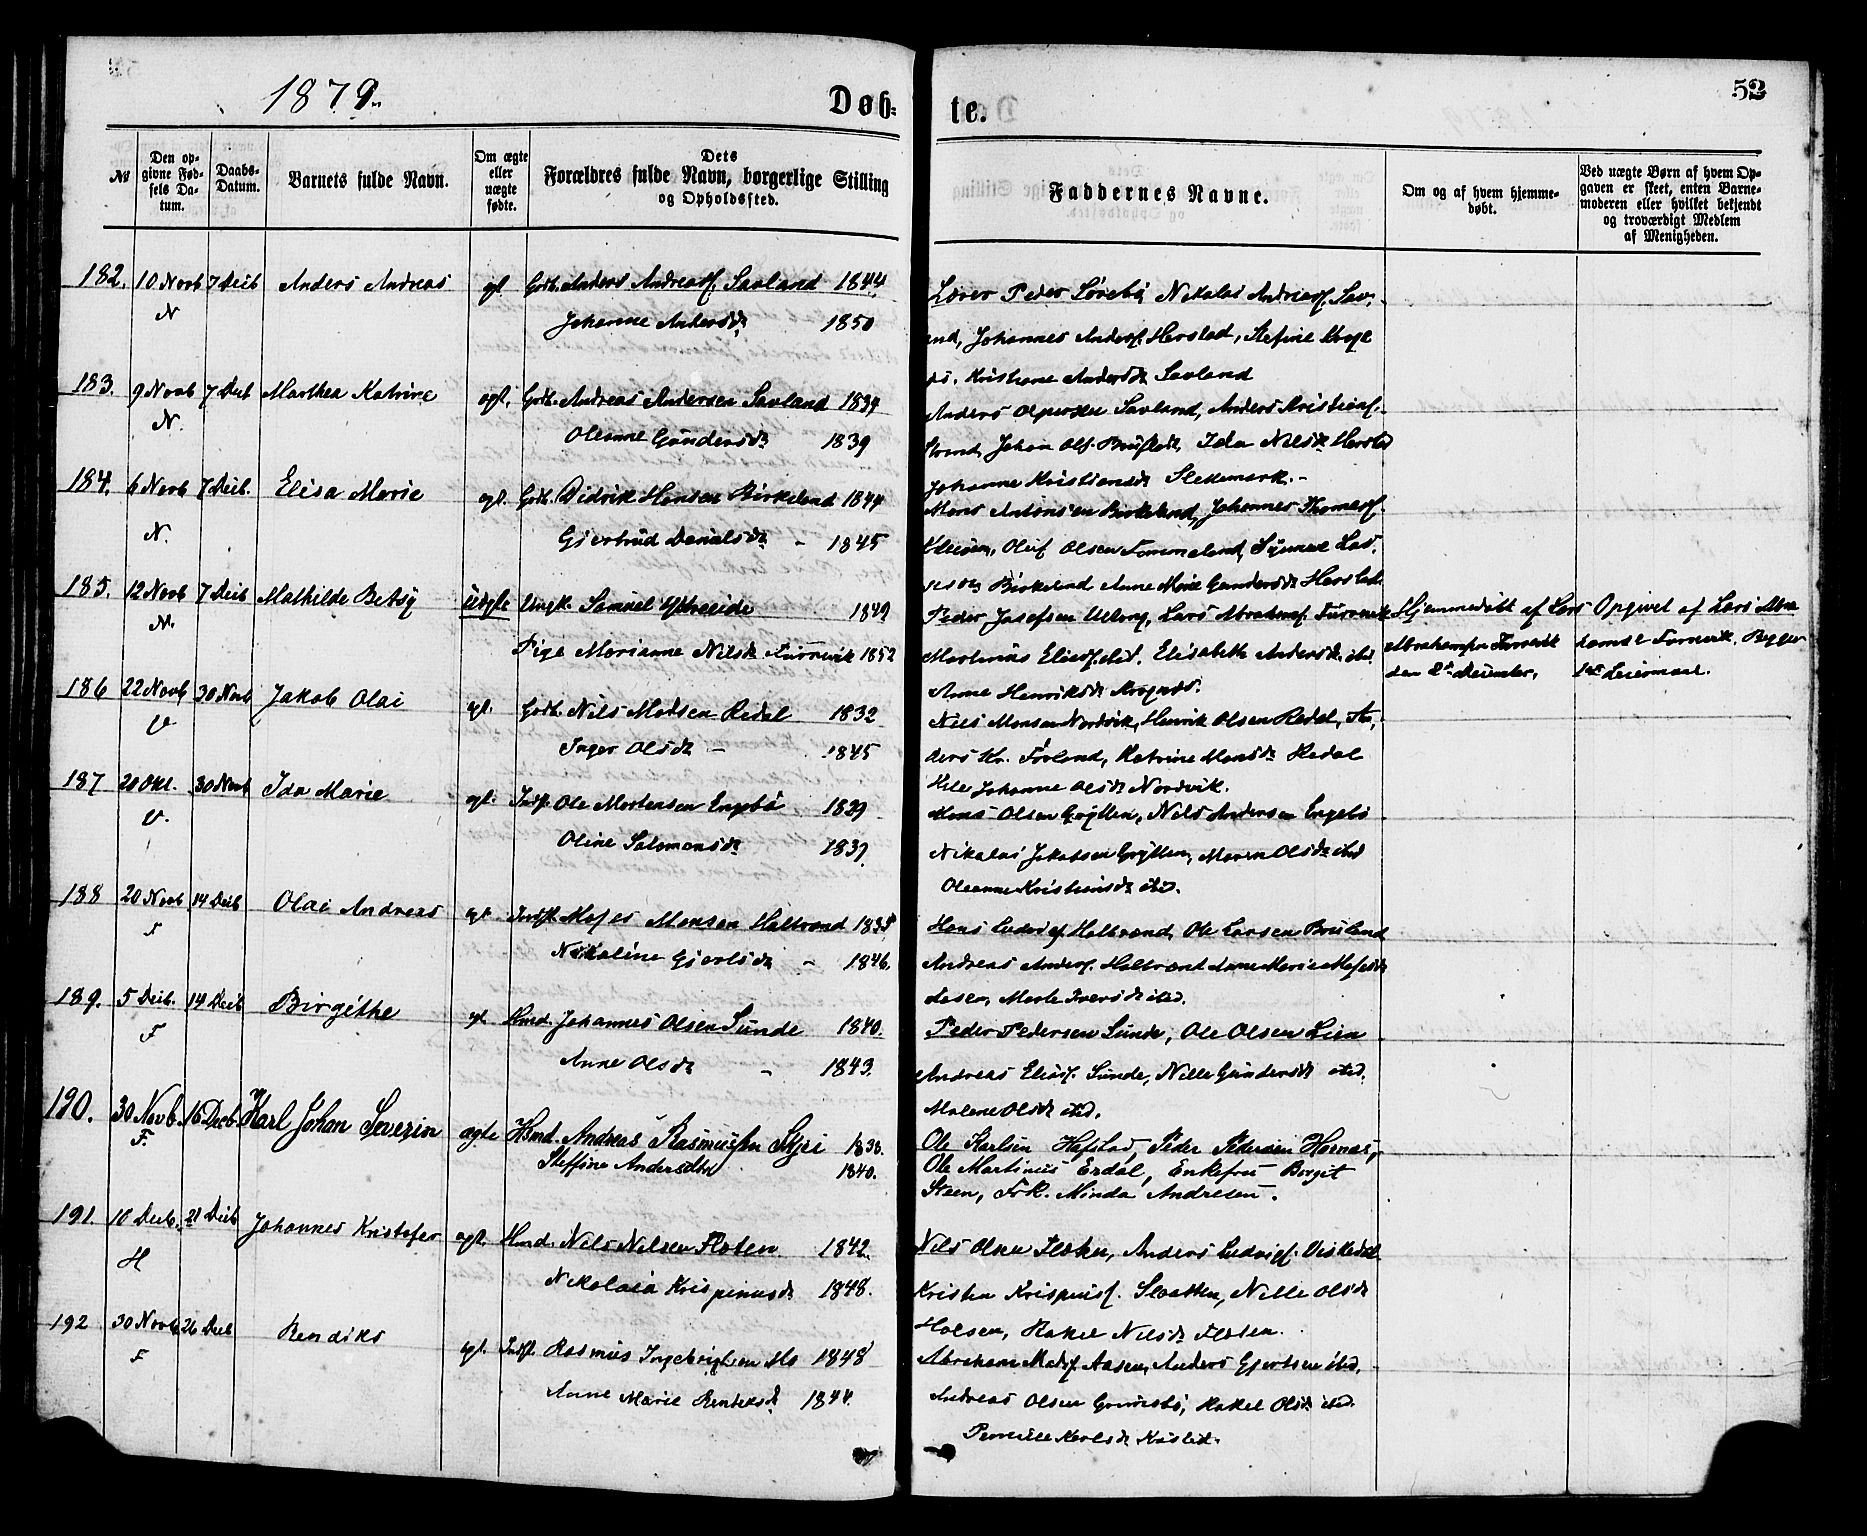 1879.
Døb-
te.
52
№
Den opgivne Fødsels Datum.
Daabs-Datum.
Barnets fulde Navn.
Om ægte eller uægte fødte.
Dets Forældres fulde Navn, borgerlige Stilling og Opholdssted.
Faddernes Navne.
Om og af hvem hjemmedøbt.
Ved uægte Børn af hvem Opgaven er skeet, enten Barnemoderen eller hvilket bekjendt og troværdigt Medlem af Menigheden.
182. 10 Novb 7 Decb Anders Andreas Anders Andreasf. Savland 1844
N Johanne Andersdr 1850
Lærer Peder Sørebø, Nikolai Andreasf. Sav-
land, Johannes Andersf. Herstad, Stefine
Kristiane Andersdr Savland
183. 9 Novb 7 Decb Marthea Katrine ægt. Andreas Andersen Savland 1834
N. Oleanne Gundersdr 1839
Anders Savland, Anders Kristians.
Strand, Johan Olss. Ida Nilsdr Herstad
Johanne Kristiansdr
184. 6 Novb 7 Decb. Elisa Marie ægt. Didrik Hansen Birkeland 1844
N. Gjertrud Danielsdr - 1845
Mons Antonsen Birkeland, Johannes Thomasf.
Oluf Olsen
Birkeland Anne Marie Gundersdr Herstad
185. 12 Novb 7 Decb Mathilde Betsy uægte Ungk. Samuel Ytreeide 1849
N. Pige Marianne Nilsdr Furrevik 1852
Peder Josefsen Lars Abrahamsf. Furrevik
Martinus Eliasf. ibid. Elisabeth Andersdr ibid.
Anne Henriksdr
Hjemmedøbt af Lars
Abrahamsen Furrevik
den 2den December.
Opgivet af Lars Abra
hamsen Furrevik. Begges
1ste Leiermaal.
186 22 Novb 30 Novb Jakob Olai ægt. Nils Madsen Redal 1832
V Inger Olsdr - 1845
Nils Monsen Nordvik, Henrik Olsen Redal, An-
ders Kr. Førland, Katrine Monsdr Redal
Johanne Olsdr Nordvik.
187 20 Okt. 30 Novb Ida Marie ægt. Indst. Ole Mortensen Engebø 1829
V. Oline Salomonsdr 1837
Mons Olsen Grytten, Nils Andersen Engebø
Nikolai Jakobsen Grytten, Maren Olsdr ibid
Oleanne Kristiansdr ibid.
188 20 Novb 14 Decb Olai Andreas ægt. Indst. Moses Monsen Halbrand 1835
F Nikoline Gjertsdr - 1846.
Hans Ludvigf. Halbrand, Ole Larsen Bruland
Andreas Andersf. Halbrand Anne Marie Mosesdr
Marte Iversdr ibid.
189. 5 Decb. 14 Decb Birgithe ægt. Hmd. Johannes Olsen Sunde 1840.
F Anne Olsdr - 1843.
Peder Pedersen Sunde, Ole Olsen Lien
Andreas Eliasf. Sunde, Nille Gundersdr ibid.
Malene Olsdr ibid.
190. 30 Novb. 16 Decb Karl Johan Severin ægte Hsmd. Andreas Rasmussen Skjei 1838.
F. Steffine Andersdtr 1840.
Ole Karlsen Hafstad, Peder Pedersen Hornæs,
Ole Martinus Erdal, Enkefru Borgit
Steen, Frk. Minda Andresen.
191. 10 Decb. 21 Decb Johannes Kristofer ægt. Hmd. Nils Nilsen Floten 1842
H Nikolaia Krispinusdr 1848.
Nils Olsen Floten, Anders Ludvigf. Viskedal
Kristen Krispinsf. Slaatten, Nille Olsdr
Holsen, Rakel Nilsdr Floten.
192 30 Novb 26 Decb Rendiks ægt. Indst. Rasmus Ingebrigtsen Mo 1848
F Anne Marie Rendiksdr 1844.
Abraham Madsf. Aasen, Anders Gjertsen ibid.
Andreas Olsen Grimsbø, Rakel Olsdr ibid.
Pernille Karlsdr